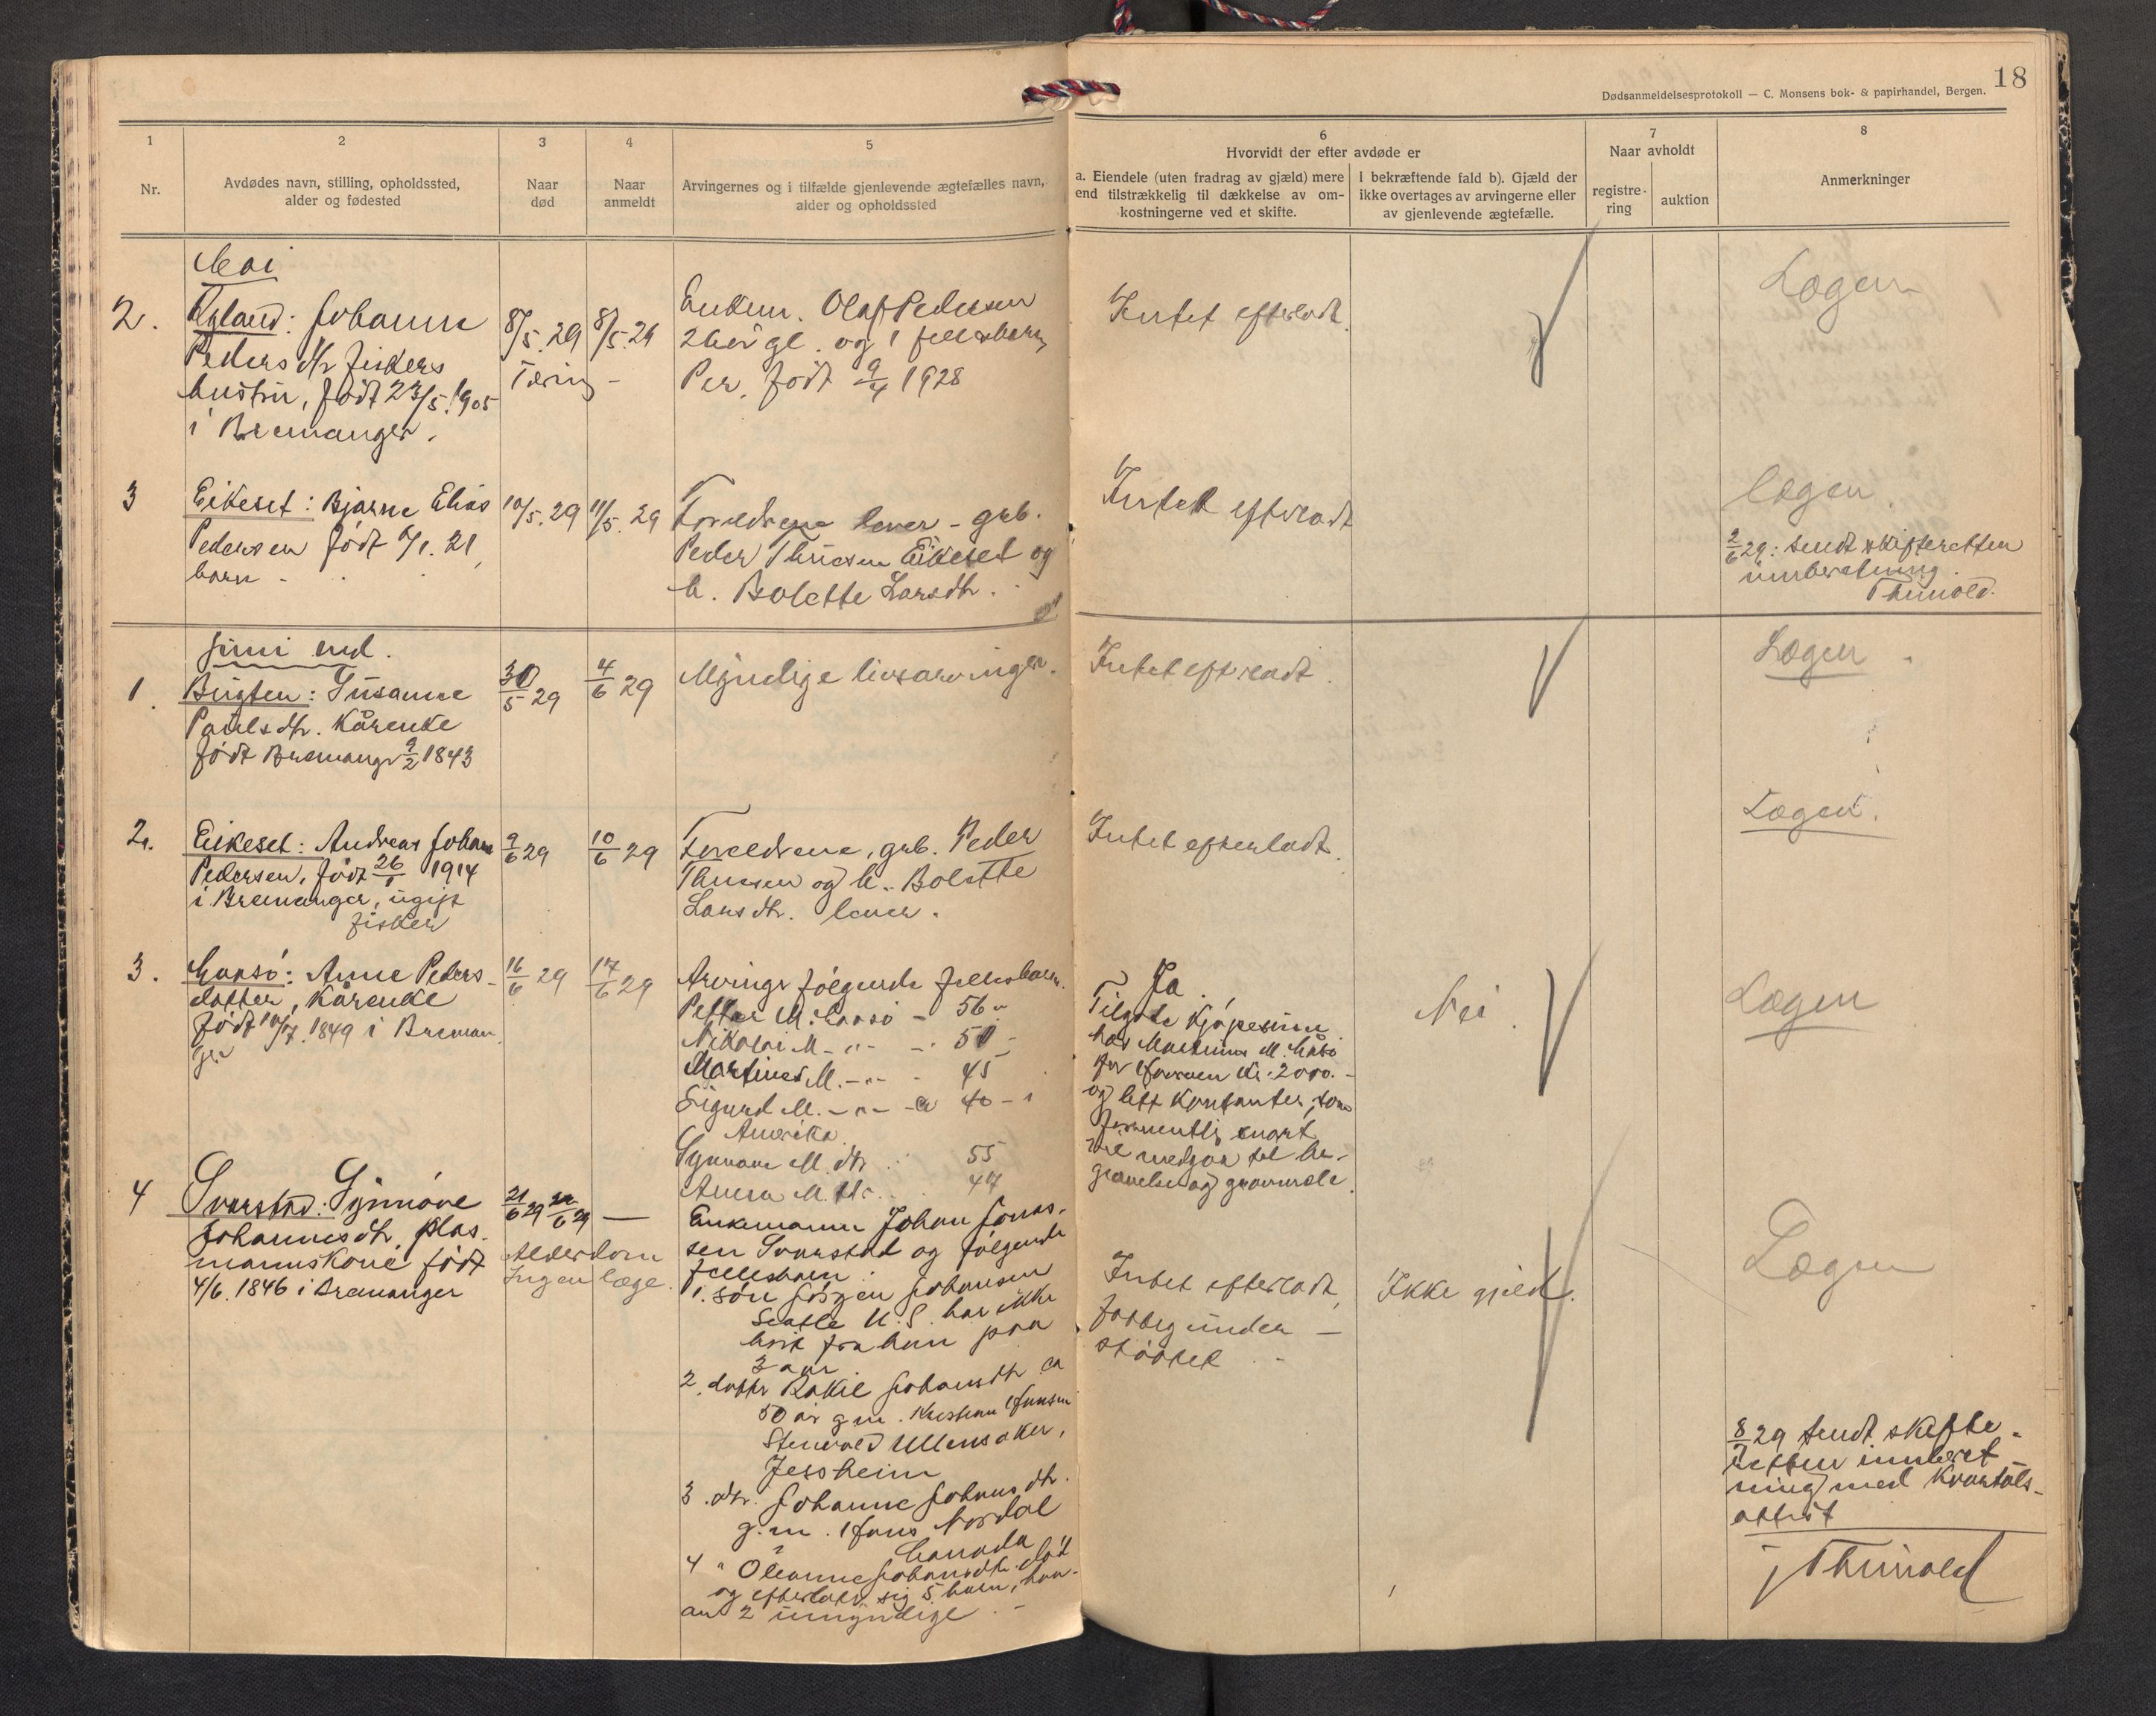 18
Dødsanmeldelsesprotokoll — C. Monsens bok- & papirhandel, Bergen.
1
2
3
4
5
6
7
8
Nr.
Avdødes navn, stilling, opholdssted,
alder og fødested
Naar
død
Naar
anmeldt
Arvingernes og i tilfælde gjenlevende ægtefælles navn,
alder og opholdssted
Hvorvidt der efter avdøde er
a. Eiendele (uten fradrag av gjæld) mere
end tilstrækkelig til dækkelse av om-
kostningerne ved et skifte.
I bekræftende fald b). Gjæld der
ikke overtages av arvingerne eller
av gjenlevende ægtefælle.
Naar avholdt
registre-
ring
auktion
Anmerkninger
Mai
2.
Johanne
Pedersdtr fiskers
hustru, født 23/5. 1905
i Bremanger.
8/5. 29
Tæring -
8/5. 29
Enkem. Olaf Pedersen
og 1 fellesbarn
Per, født 9/4 1928
Intet efterladt.
Lægen
3
Eikeset: Bjarne Elias
Pedersen født 6/1. 21,
barn -
10/5. 29
11/5. 29
Foreldrene lever - grb.
Peder Thuesen Eikeset og
h. Bolette Larsdtr.
Intet efterladt
lægen
2/6 29: sendt skifteretten
innberetning.
Thunold.
Juni md.
1.
Bugten: Susanne
Paulsdtr. Kårenke
født Bremangr 9/2 1843
30/5 29
4/6 29
Myndige livsarvinger.
Intet efterladt.
Lægen
2.
Eikeset: Andreas Johan
Pedersen, født 26/1 1914
i Bremanger, ugift
fisker
9/6 29
10/6 29
Foreldrene, grb. Peder
Thuesen og h. Bolette
Larsdtr. lever.
Intet efterladt.
Lægen.
3.
Anne Peders-
datter, Kårenke
født 10/7. 1849 i Breman
ger
16/6 29
17/6 29
Arvinger følgende fellesbarn.
Petter M. - 56 -
Nikolai M. - " - 50 -
Martines M. - " - 45
Sigurd M. - " - ca 40 - i
Amerika.
M. dtr 55
M. dtr. 47
Ja.
Tilgode kjøpesum
hos Martinus M.
kr. 2000. -
og litt kontanter, som
formentlig snart
vil medgaa til be-
gravelse og gravmæle.
Nei.
Lægen
4
Svarstad: Synnöve
Johannesdtr, plas-
mannskone født
4/6. 1846 i Bremanger
21/6 29
—
Alderdom
Ingen læge.
Enkemann Johan Jonas-
sen Svarstad og følgende
fellesbarn:
1. søn Jørgen Johansen
Seatle U. S. har ikke
hørt fra ham paa
3 aar
2. datter Rakil Johansdtr ca
50 år g.m. Kristian Hansen
Ullensaker,
Jessheim
3. dtr. Johanne Johansdtr.
g.m. Hans Nordal
Canada
4 " Oleanne Johansdtr. død
og efterlater sig 5 barn, hvor-
av 2 umyndige. -
Intet efterladt,
fattigunder -
støttet.
Ikke gjeld.
Lægen
8/7 29 sendt skifte-
retten innberet-
ning med kvartals-
attest
Thunold